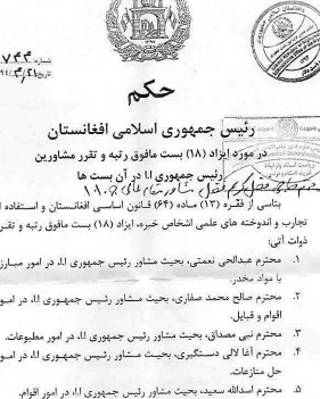 شماره: ۷۴۴
تاریخ: ۹۴/۳/۲۱
حکم
رئیس جمهوری اسلامی افغانستان
در مورد ایزاد (۱۸) بست مافوق رتبه و تقرر مشاورین
رئیس جمهوری ا.ا در آن بست ها
بتاسی از فقره (۱۳) ماده (۶۴) قانون اساسی افغانستان و استفاده از
تجارب و اندوخته های علمی اشخاص خبره، ایزاد (۱۸) بست مافوق رتبه و تقرر
ذوات آتی:
۱. محترم عبدالحی نعمتی، بحیث مشاور رئیس جمهوری ا.ا، در امور مبارزه
با مواد مخدر.
۲. محترم صالح محمد صفاری، بحیث مشاور رئیس جمهوری ا.ا، در امور
اقوام و قبایل.
۳. محترم نبی مصداق، بحیث مشاور رئیس جمهوری ا.ا، در امور مطبوعات.
۴. محترم آغا لالی دستگیری، بحیث مشاور رئیس جمهوری ا.ا، در امور
حل منازعات.
۵. محترم اسدالله سعید، بحیث مشاور رئیس جمهوری ا.ا، در امور اقوام.